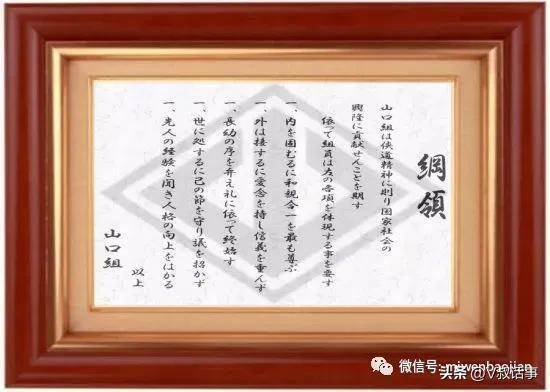 綱領
山口組は侠道精神に則り国家社会の
興隆に貢献せんことを期す
依って組員は左の各項を体現する事を要す
一、内を固むるに和親合一を最も尊ぶ
一、外は接するに愛念を持し信義を重んず
一、長幼の序を弁え礼に依って終始す
一、世に処するに己の節を守り譏を招かず
一、先人の経験を聞き人格の向上をはかる
以上
山口組
微信号: miwenbaojian
头条 @V叔话事